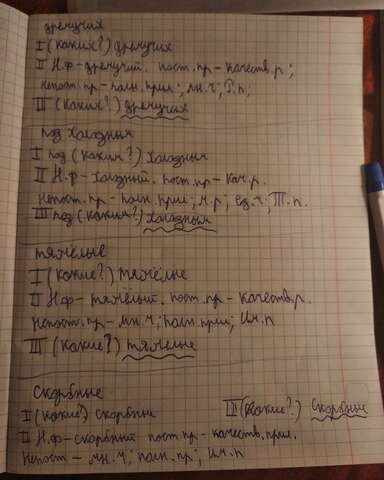 дремучия
I (каких?) дремучия
II Н.ф-дремучий. пост.пр-качеств.р;
Непост.пр-полн.прил; мн.ч; Р.п;
III (каких?) дремучия
под холодным
I под (каким?) холодным
II Н.ф-холодный. пост.пр-кач.р.
Непост.пр-полн.прил; м.р; ед.ч; Т.п.
III под (каким?) холодным
тяжёлые
I (какие?) тяжёлые
II Н.ф-тяжёлый. пост.пр-качеств.р.
Непост.пр-мн.ч; полн.прил; Им.п
III (какие?) тяжелые
Скорбные
I (какие?) Скорбные III (какие?) Скорбные
II Н.ф-скорбный пост.пр-качеств.прил.
Непост-мн.ч; полн.пр; Им.п